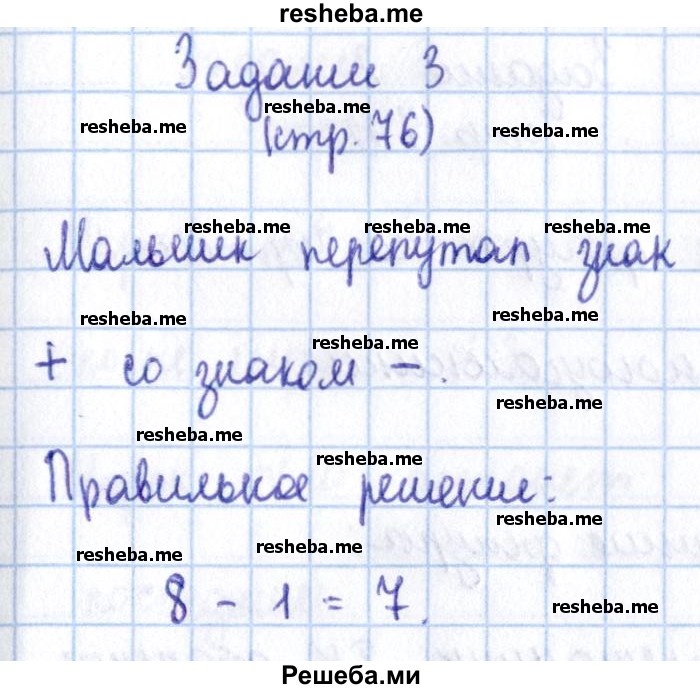 resheba.me
Задание 3
resheba.me
resheba.me resheba.me
(стр. 76)
resheba.me resheba.me resheba.me
Мальчик перепутал знак
resheba.me resheba.me
resheba.me
+ со знаком -.
resheba.me
resheba.me
resheba.me
Правильное решение:
resheba.me
resheba.me resheba.me
8 - 1 = 7.
resheba.me
Решеба.ми